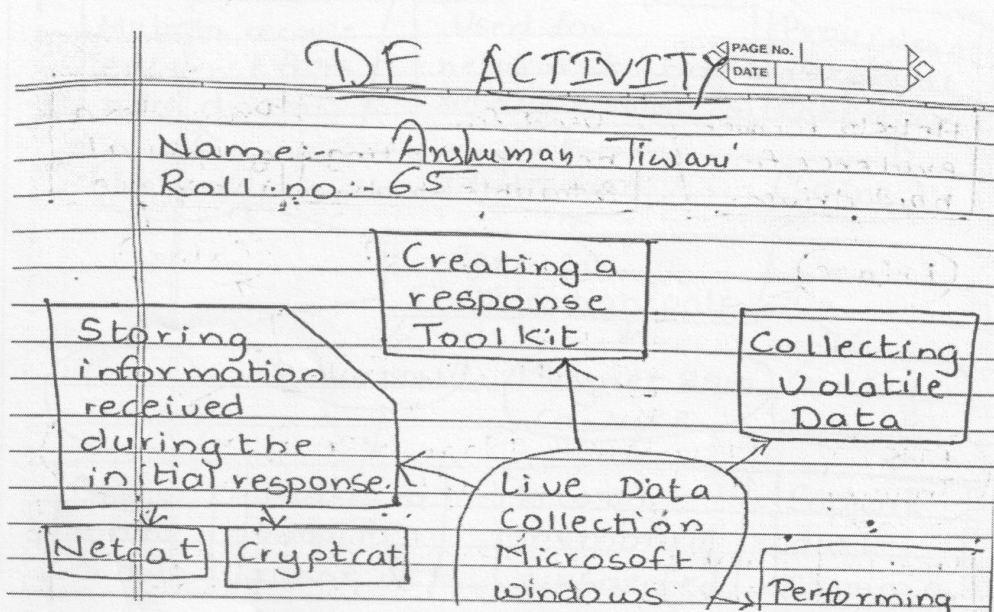 DF ACTIVITY
PAGE No.
DATE
Name :- Anshuman Tiwari
Roll.no :- 65
Creating a
response
Toolkit
Storing
information
received
during the
initial response.
Collecting
Volatile
Data
Netcat
Cryptcat
Live Data
Collection
Microsoft
windows
Performing